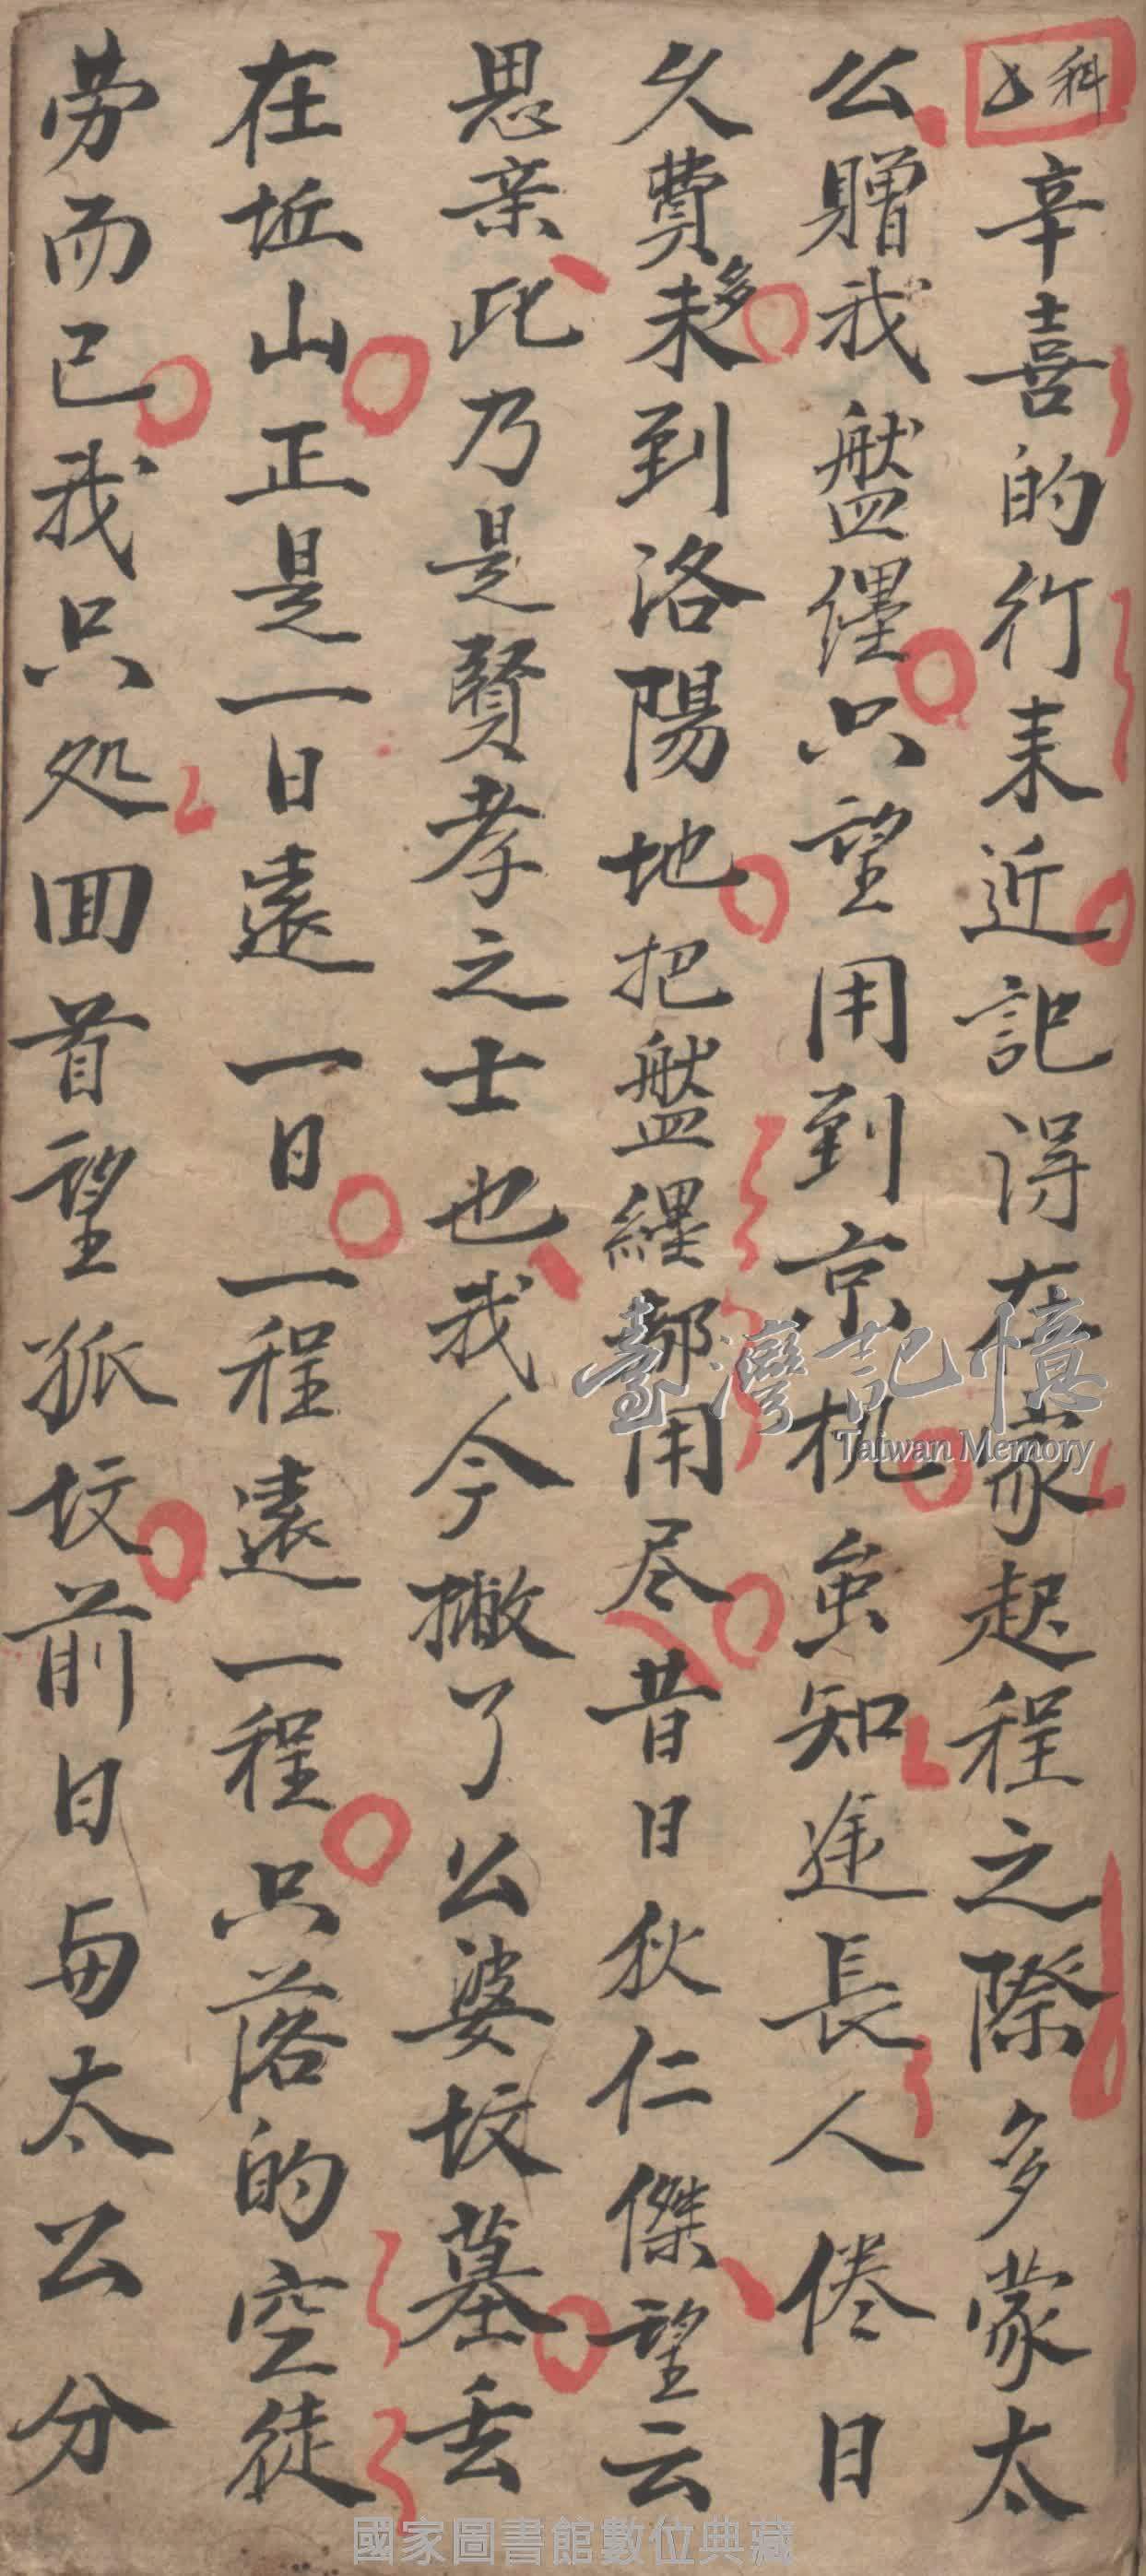 科
辛喜的行来近記得在家起程之際多蒙太
公贈我盤纏只望用到京机虽知途長人倦日
久費移未到洛陽地把盤纏都用尽昔日狄仁傑望云
思亲此乃是賢孝之士也我今撇了公婆坟墓丢
在坵山正是一日遠一日一程遠一程只落的空徒
劳而已我只処回首望孤坟前日与太公分
臺灣記憶
Taiwan Memory
國家圖書館數位典藏